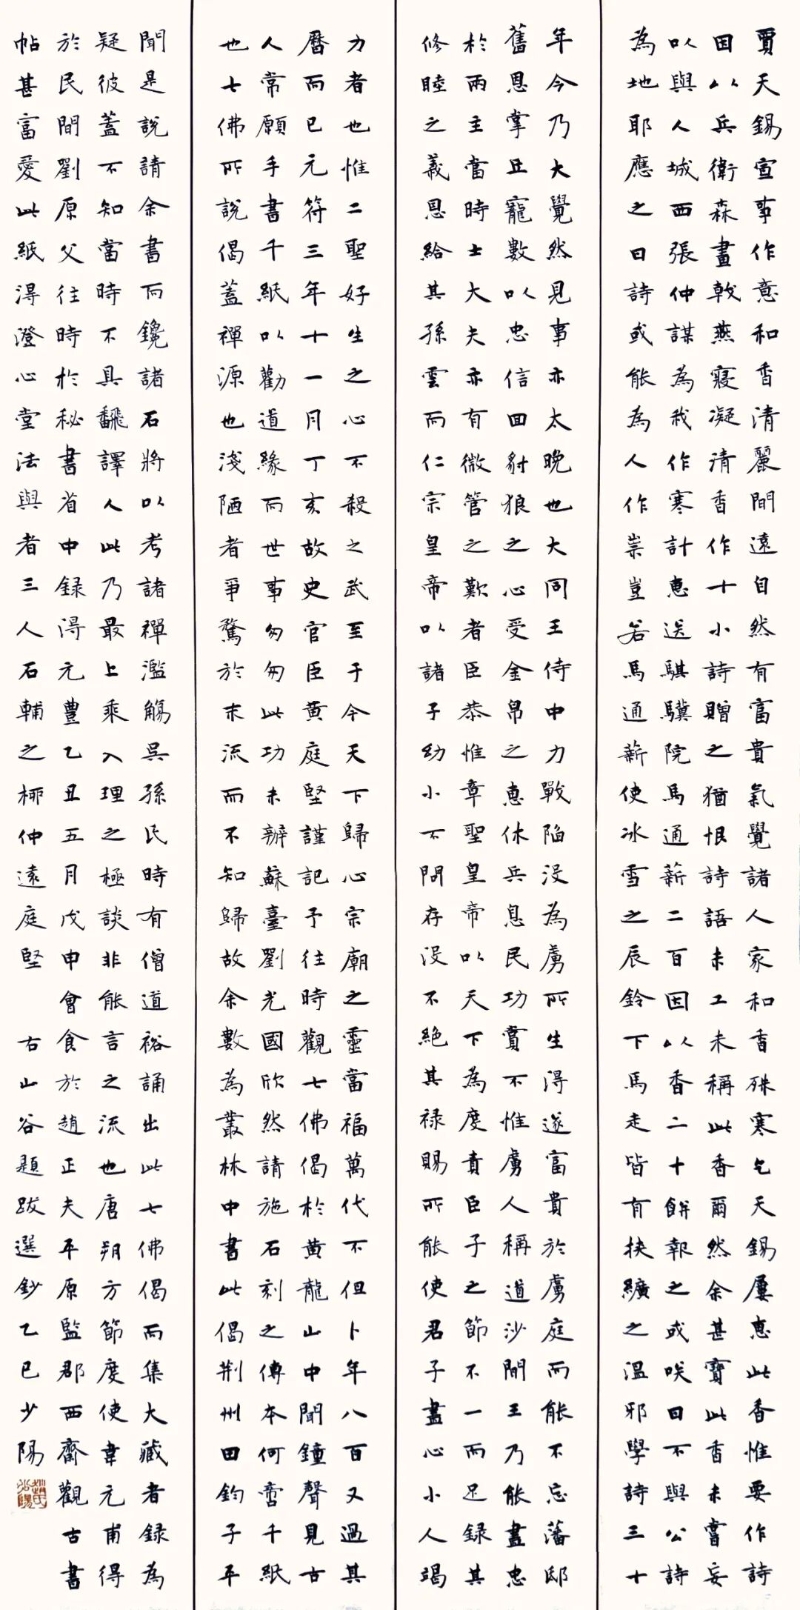 賈天錫宣事作意和香清麗閒遠自然有富貴氣覺諸人家和香殊寒乞天錫屢惠此香惟要作詩
因以兵衛森畫戟燕寢凝清香作十小詩贈之猶恨詩語未工未稱此香爾然余甚寶此香未嘗妄
以與人城西張仲謀為我作寒計惠送騏驥院馬通薪二百因以香二十餅報之或咲曰不與公詩
為地耶應之曰詩或能為人作祟豈若馬通薪使冰雪之辰鈴下馬走皆有挾纊之溫邪學詩三十
年今乃大覺然見事亦太晚也大同王侍中力戰陷沒為虜所生得遂富貴於虜庭而能不忘藩邸
舊恩掌丑寵數以忠信回豺狼之心受金帛之惠休兵息民功實不惟虜人稱道沙間王乃能盡忠
於兩主當時士大夫亦有微管之歎者臣恭惟章聖皇帝以天下為度責臣子之節不一而足錄其
修睦之義恩給其孫雲而仁宗皇帝以諸子幼小不問存沒不絕其祿賜所能使君子盡心小人竭
力者也惟二聖好生之心不殺之武至于今天下歸心宗廟之靈當福萬代不但卜年八百又過其
曆而已元符三年十一月丁亥故史官臣黃庭堅謹記予往時觀七佛偈於黃龍山中聞鐘聲見古
人常願手書千紙以勸道緣而世事匆匆此功未辦蘇臺劉光國欣然請施石刻之傳本何啻千紙
也七佛所說偈蓋禪源也淺陋者爭騖於末流而不知歸故余數為叢林中書此偈荆州田鈞子平
聞是說請余書而鑱諸石將以考諸禪濫觴吳孫氏時有僧道裕誦出此七佛偈而集大藏者錄為
疑彼蓋不知當時不具飜譯人此乃最上乘入理之極談非能言之流也唐朔方節度使韋元甫得
於民間劉原父往時於秘書省中錄得元豐乙丑五月戊申會食於趙正夫平原監郡西齋觀古書
帖甚富愛此紙得澄心堂法與者三人石輔之柳仲遠庭堅 右山谷題跋選鈔乙巳少陽